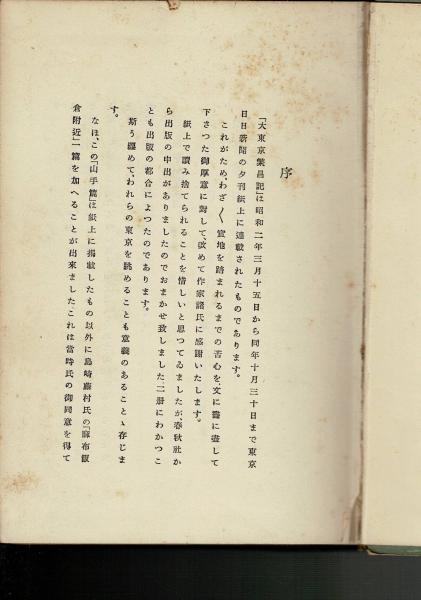 序
「大東京繁昌記」は昭和二年三月十五日から同年十月三十日まで東京
日日新聞の夕刊紙上に連載されたものであります。
これがため、わざ〱實地を踏まれるまでの苦心を、文に畫に盡して
下さつた御厚意に對して、改めて作家諸氏に感謝いたします。
紙上で讀み捨てられることを惜しいと思つてゐましたが、春秋社か
ら出版の申出がありましたのでおまかせ致しました二册にわかつこ
とも出版の都合によつたのであります。
斯う纒めて、われらの東京を眺めることも意義のあることゝ存じま
す。
なほ、この「山手篇」は紙上に掲載したもの以外に島崎藤村氏の「麻布飯
倉附近」一篇を加へることが出來ましたこれは當時氏の御同意を得て